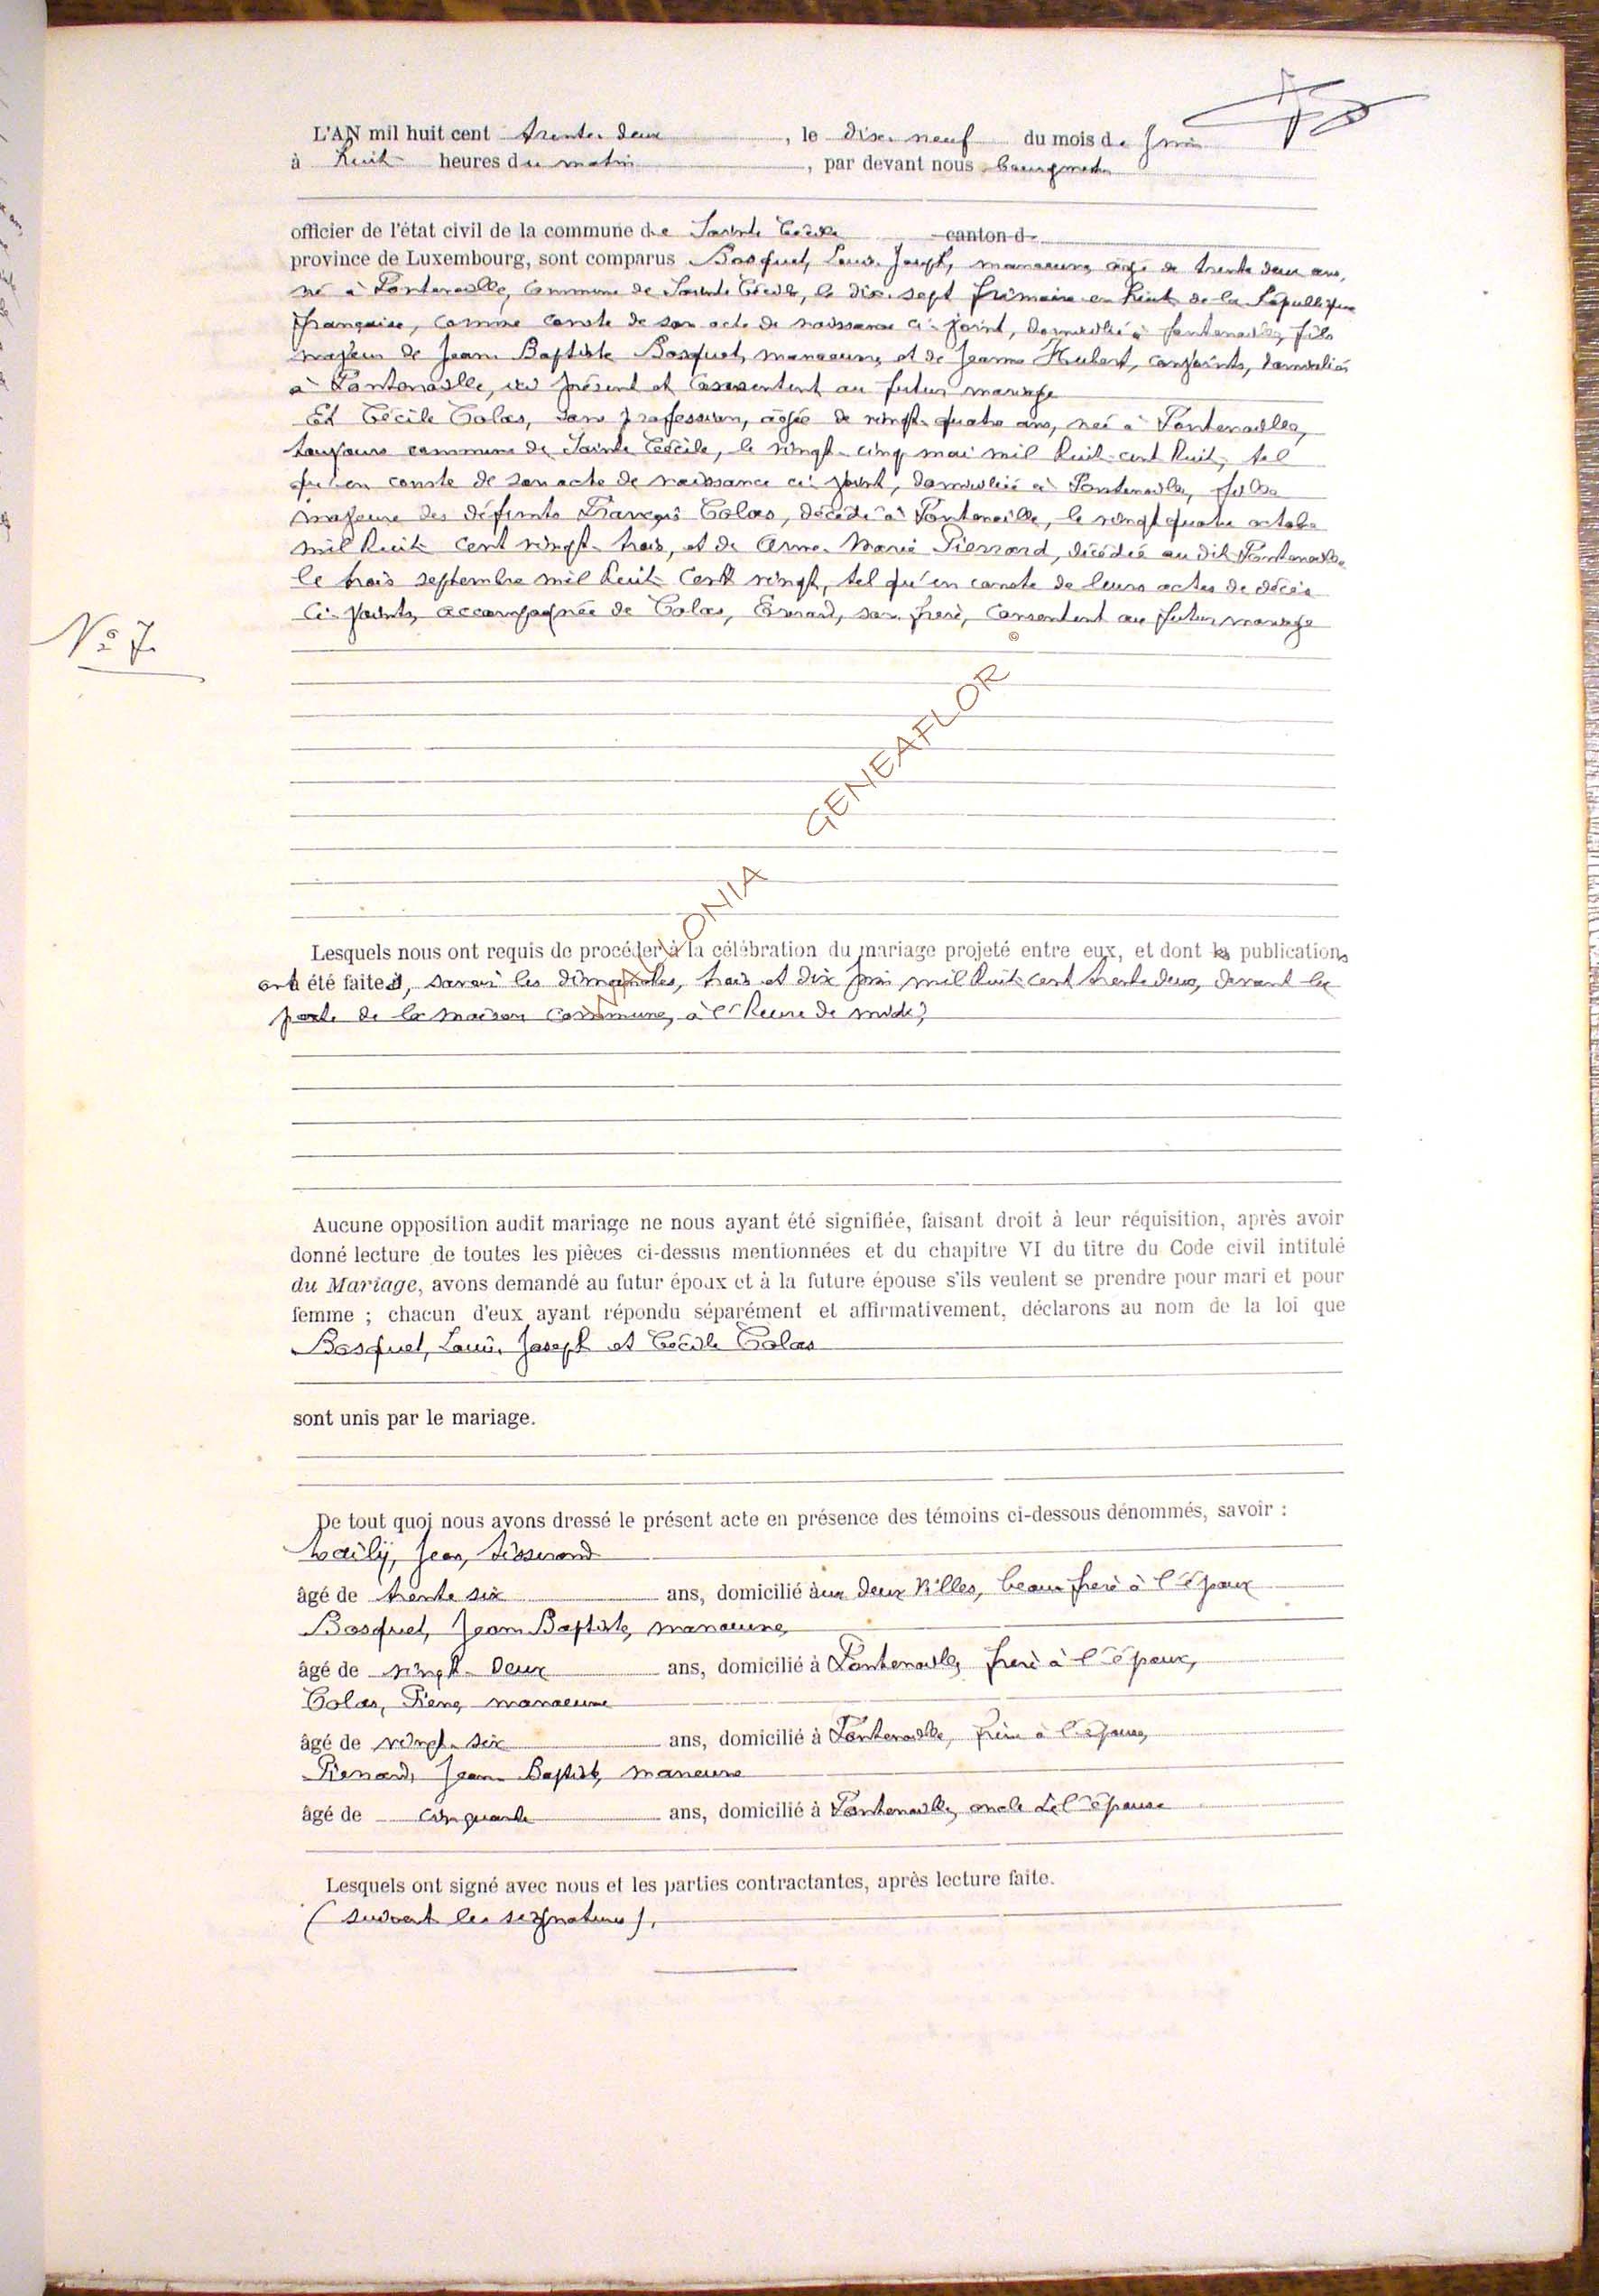 L'AN mil huit cent trente deux, le dix neuf du mois de Juin
à huit heures du matin, par devant nous bourgmestre
officier de l'état civil de la commune de Sainte Cécile canton d
province de Luxembourg, sont comparus Bosquet, Louis Joseph, manoeuvre, âgé de trente deux ans,
né à Fontenoille, commune de Sainte Cécile, le dix sept frimaire an huit de la République
française, comme conste de son acte de naissance ci-joint, domicilié à fontenoille, fils
majeur de Jean Baptiste Bosquet, manoeuvre, et de Jeanne Hubert, conjoints, domiciliés
à Fontenoille, ici présent et consentent au futur mariage
Et Cécile Colas, sans profession, âgée de vingt-quatre ans, née à Fontenoille,
toujours commune de Sainte Cécile, le vingt-cinq mai mil huit cent huit, tel
qu'en conste de son acte de naissance ci joint, domiciliée à Fontenoille, fille
majeure des défunts François Colas, décédé à Fontenoille, le vingt quatre octobre
mil huit cent vingt-trois, et de Anne-Marie Pierrard, décédée au dit Fontenoille
le trois septembre mil huit cent vingt, tel qu'en conste de leurs actes de décès
ci-joints, accompagnée de Colas, son frère, consentent au futur mariage
N° 7.
©
WALLONIA GENEAFLOR
Lesquels nous ont requis de procéder à la célébration du mariage projeté entre eux, et dont les publications
ont été faites, savoir les dimanches, trois et dix juin mil huit cent trente deux, devant la
porte de la maison commune, à l'heure de midi;
Aucune opposition audit mariage ne nous ayant été signifiée, faisant droit à leur réquisition, après avoir
donné lecture de toutes les pièces ci-dessus mentionnées et du chapitre VI du titre du Code civil intitulé
du Mariage, avons demandé au futur époux et à la future épouse s'ils veulent se prendre pour mari et pour
femme ; chacun d'eux ayant répondu séparément et affirmativement, déclarons au nom de la loi que
Bosquet, Louis Joseph et Cécile Colas
sont unis par le mariage.
De tout quoi nous avons dressé le présent acte en présence des témoins ci-dessous dénommés, savoir :
Jean, tisserand
âgé de trente six ans, domicilié aux deux Villes, beau frère à l'époux
Bosquet, Jean Baptiste, manoeuvre,
âgé de vingt-deux ans, domicilié à Fontenoille, frère à l'époux,
Colas, Pierre, manoeuvre
âgé de vingt-six ans, domicilié à Fontenoille, frère à l'épouse,
Pierrard, Jean Baptiste, manoeuvre
âgé de cinquante ans, domicilié à Fontenoille, oncle à l'épouse
Lesquels ont signé avec nous et les parties contractantes, après lecture faite.
(suivent les signatures).